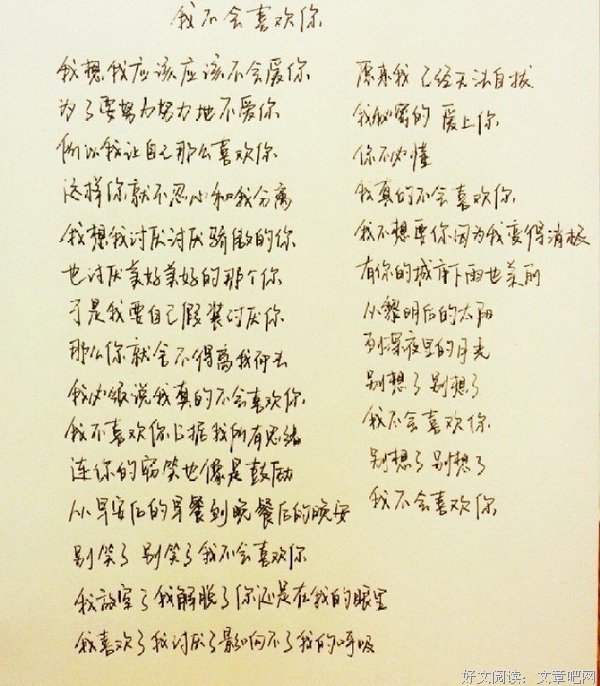 我不会喜欢你
我想我应该应该不会爱你
为了要努力努力地不爱你
所以我让自己那么喜欢你
这样你就不忍心和我分离
我想我讨厌讨厌骄傲的你
也讨厌美好美好的那个你
于是我要自己假装讨厌你
那么你就舍不得离我而去
我必须说我真的不会喜欢你
我不喜欢你占据我所有思绪
连你的窃笑也像是鼓励
从早安后的早餐到晚餐后的晚安
别笑了 别笑了我不会喜欢你
我放空了我解脱了你还是在我的眼里
我喜欢了我讨厌了影响不了我的呼吸
原来我已经无法自拔
我秘密的 爱上你
你不必懂
我真的不会喜欢你
我不想要你因为我变得消极
有你的城市下雨也美丽
从黎明后的太阳
到深夜里的月光
别想了 别想了
我不会喜欢你
别想了 别想了
我不会喜欢你
好文阅读：文章吧网